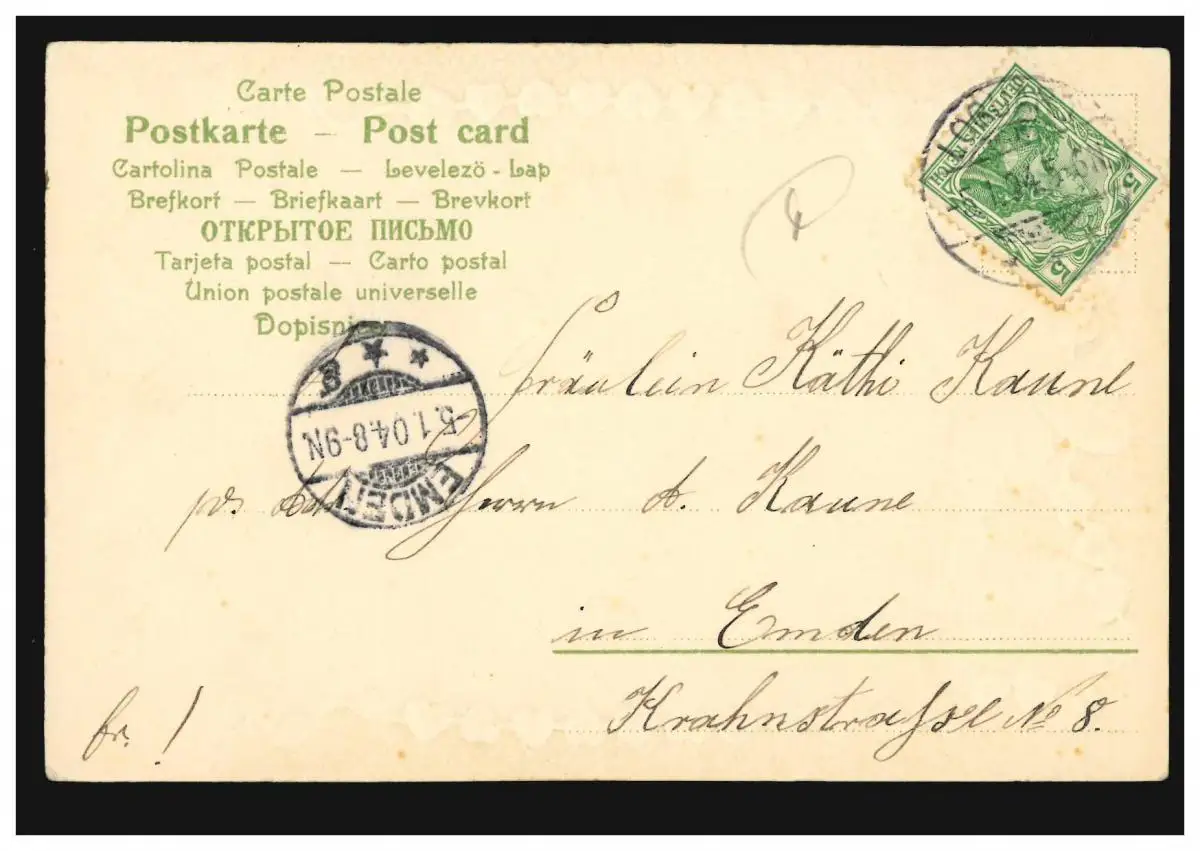 Carte Postale
Postkarte – Post card
Cartolina Postale — Levelezö - Lap
Brefkort — Briefkaart — Brevkort
ОТКРЫТОЕ ПИСЬМО
Tarjeta postal — Carto postal
Union postale universelle
Dopisnice
DEUTSCHES REICH
5 5
EMDEN
5.1.04.8-9N
8
Fräulein Käthi Kaune
Herrn A. Kaune
in Emden
Krahnstraße No 8.
fr. !